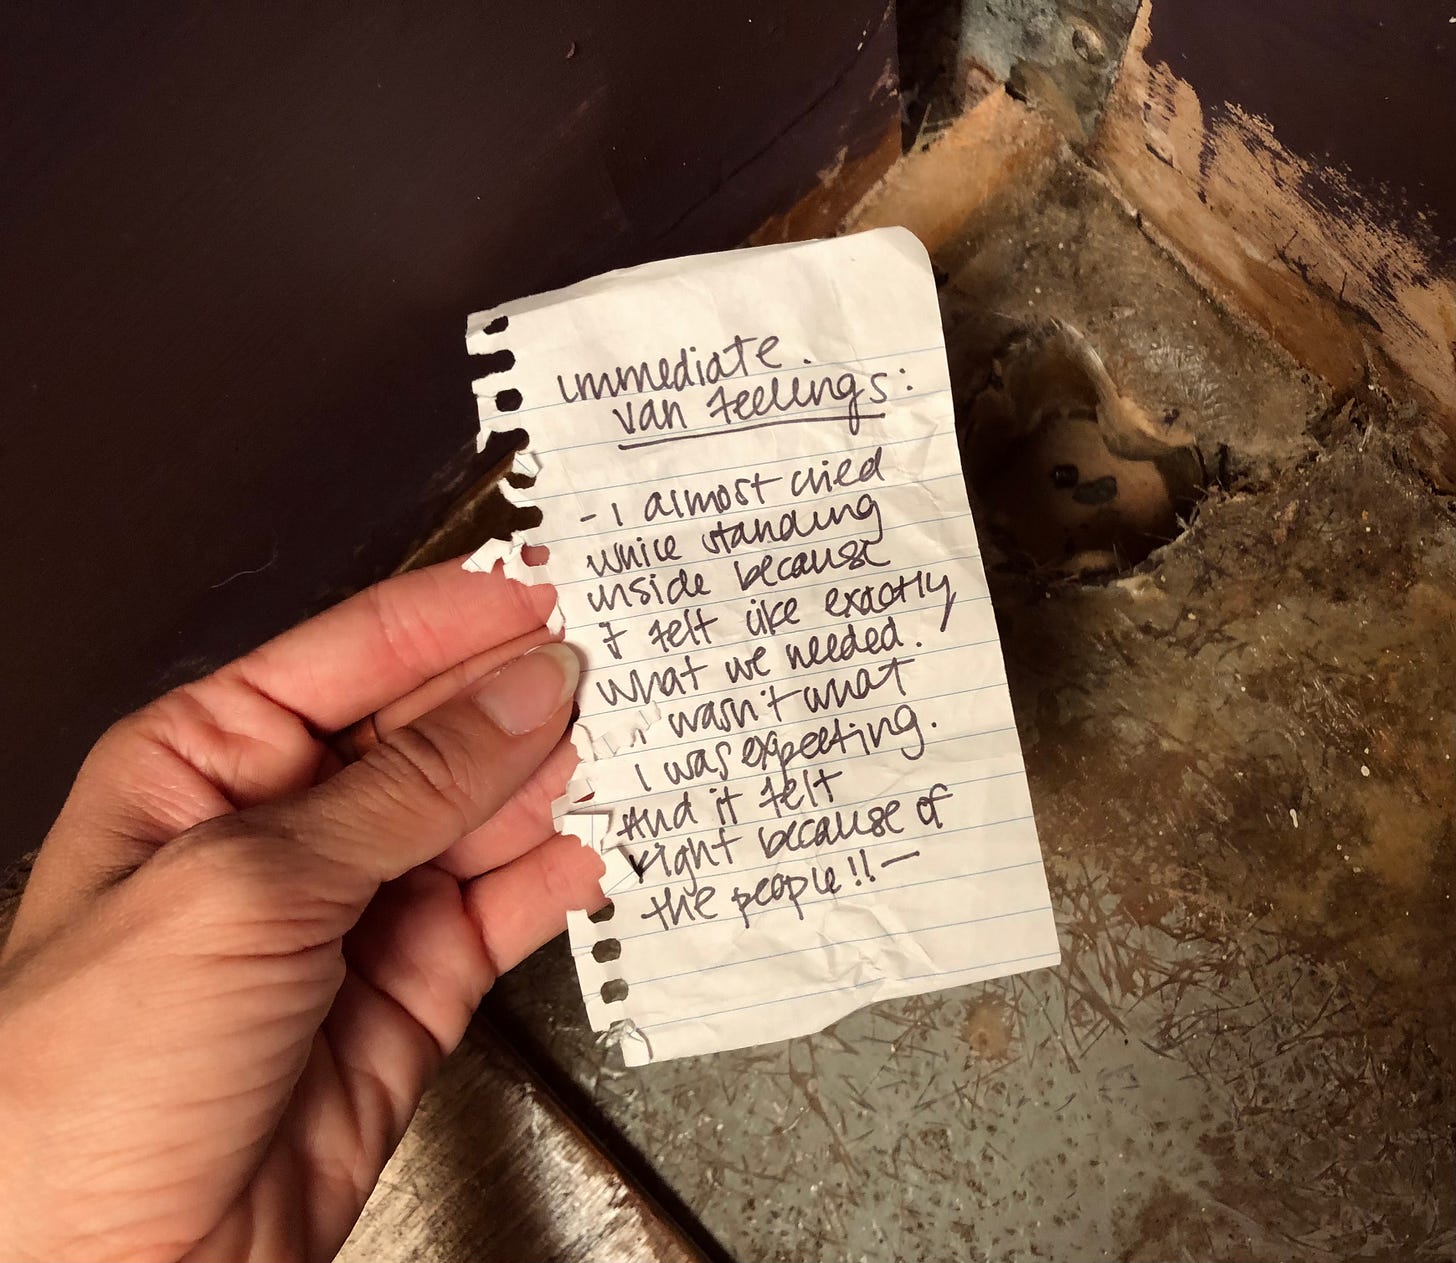 immediate
van feelings:
- I almost cried
while standing
inside because
I felt like exactly
what we needed.
it wasn't what
I was expecting.
And it felt
right because of
the people!! —